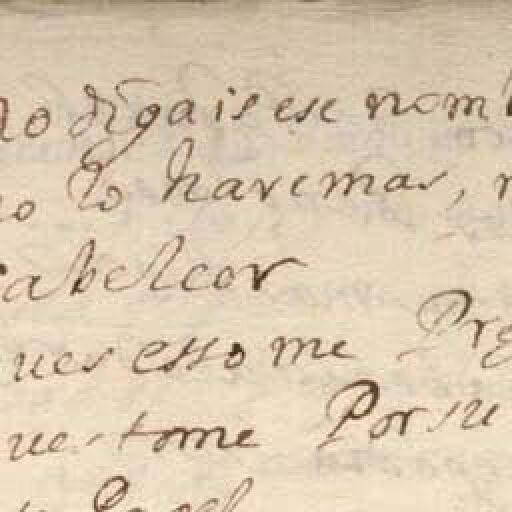 no digais ese nom
no lo haremas,
sabeleor
ues esso me Pre
ues tome Porsu